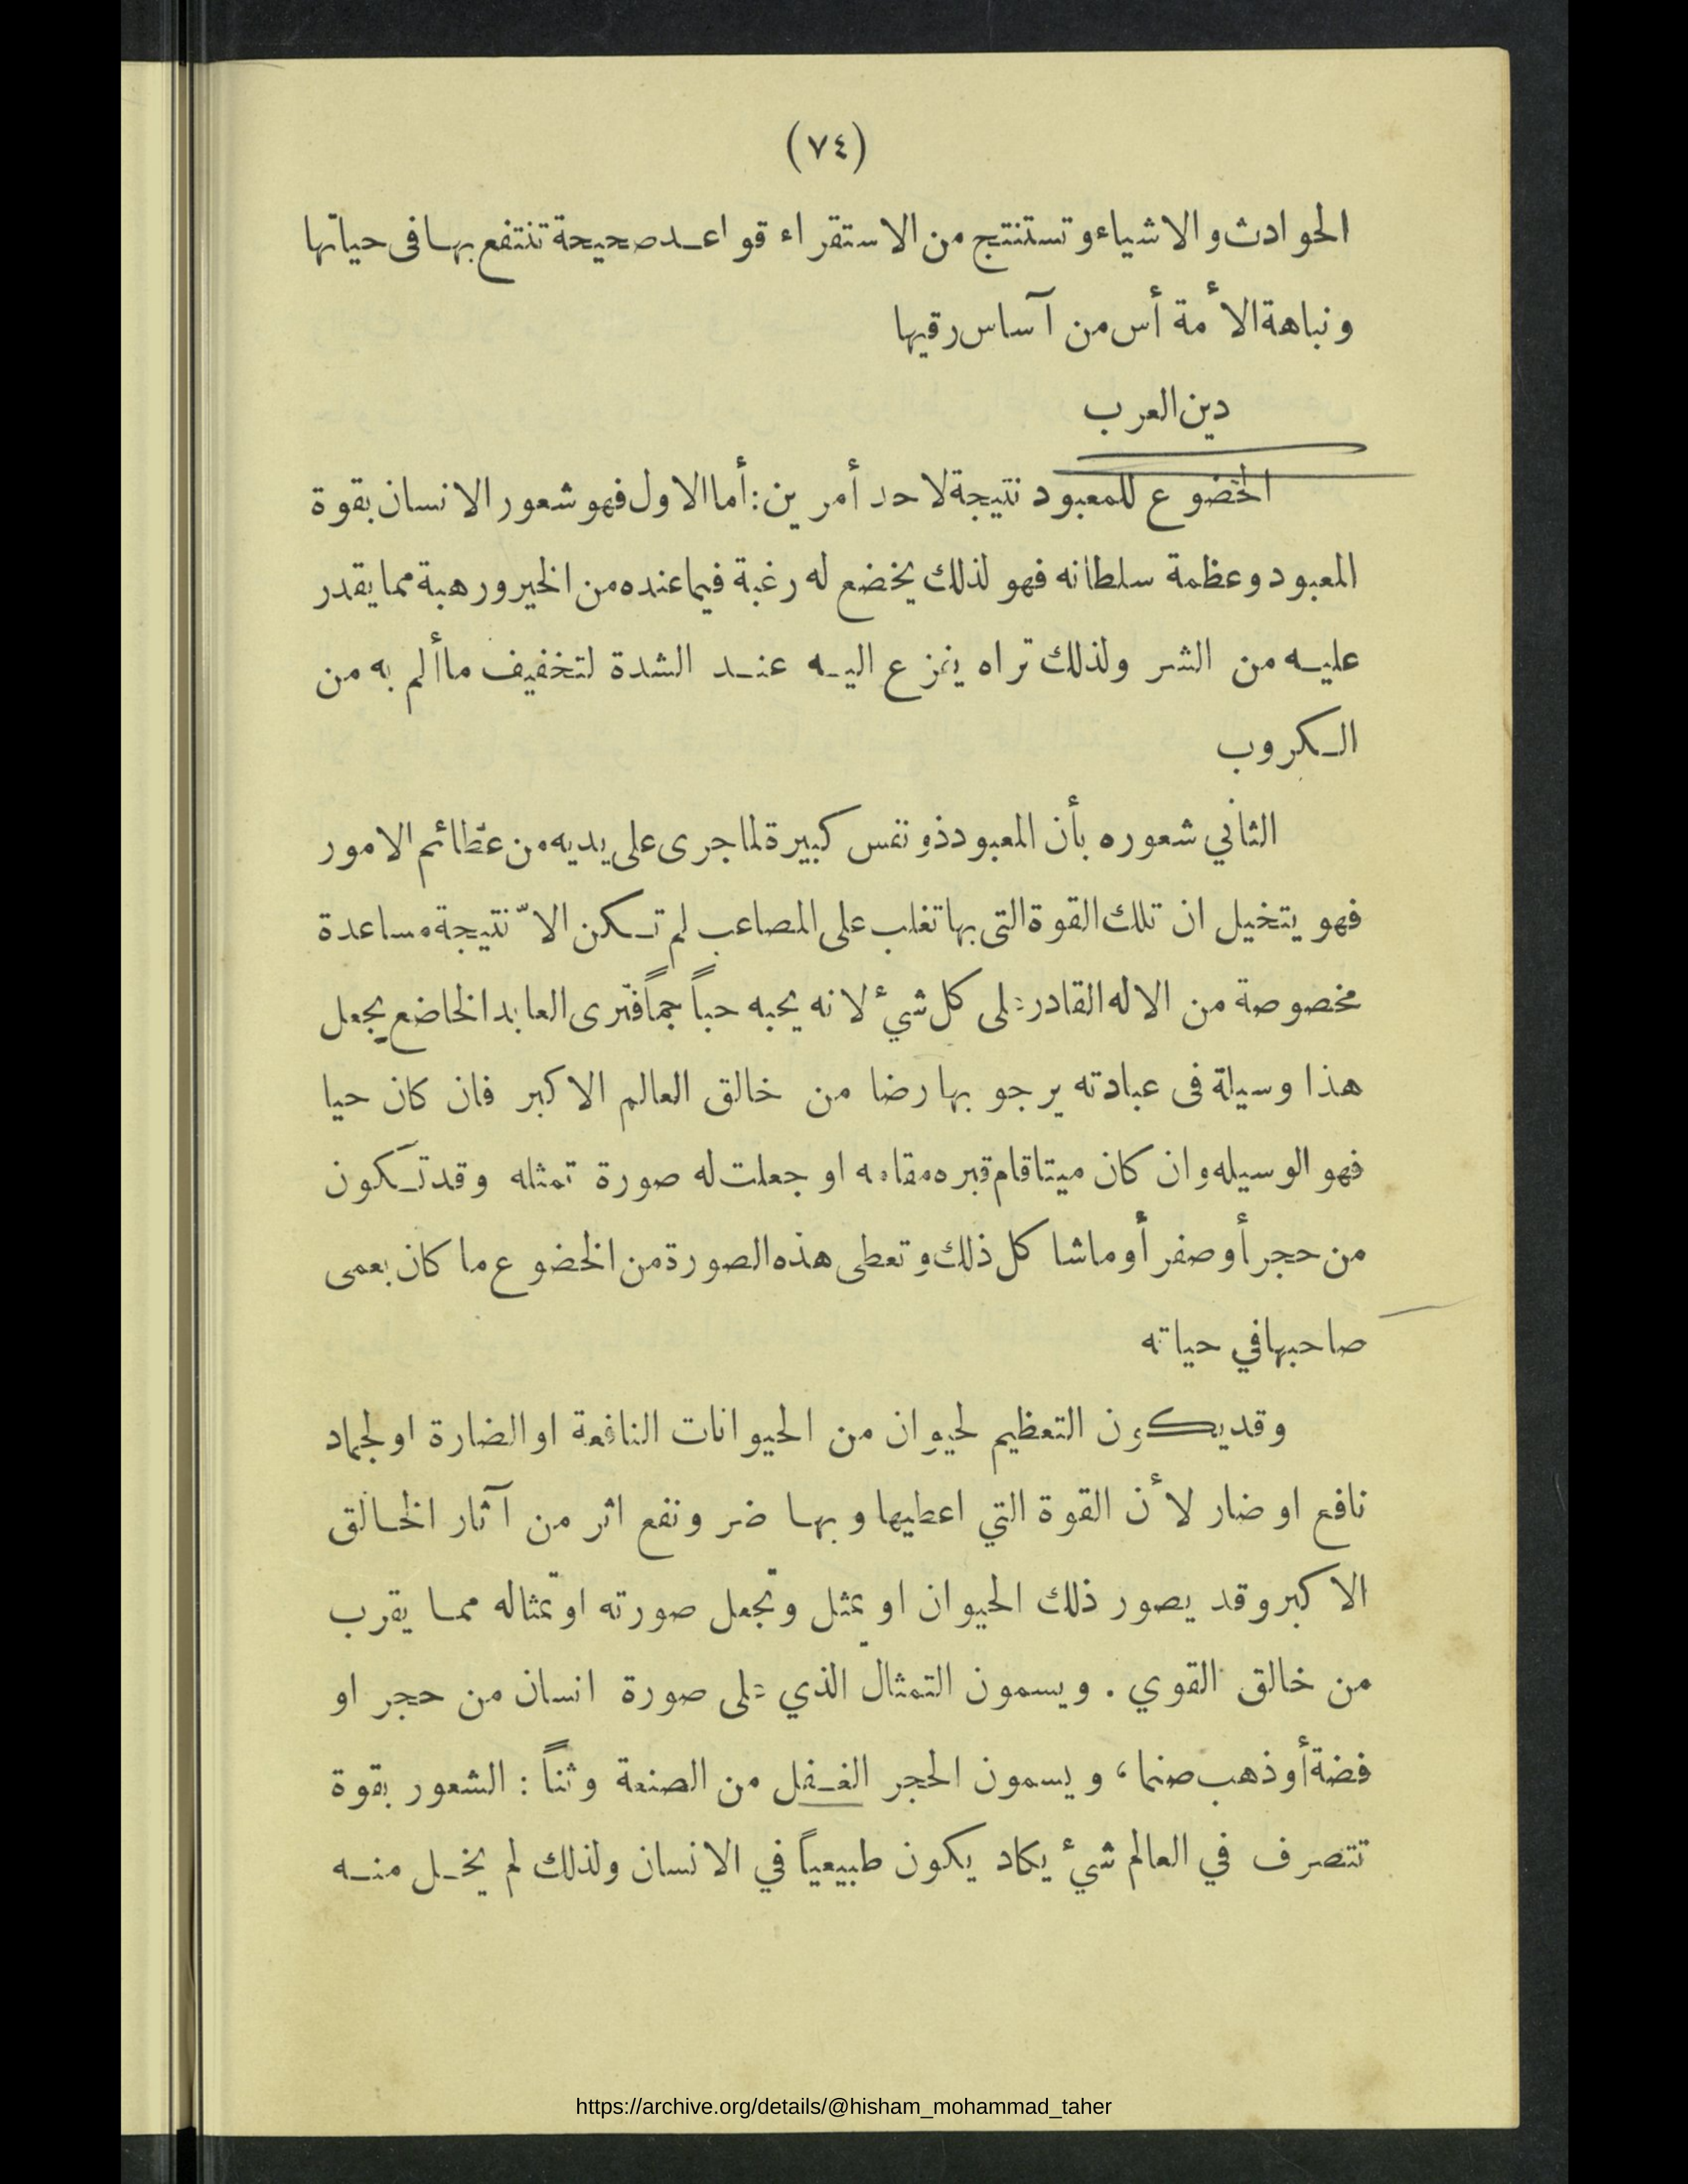 (٧٤)
الحوادث والاشياء وتستنتج من الاستقراء قواعد صحيحة تنتفع بها فى حياتها
ونباهة الأمة أس من آساس رقيها
دين العرب
الخضوع للمعبود نتيجة لاحد أمرين: أما الاول فهو شعور الانسان بقوة
المعبود وعظمة سلطانه فهو لذلك يخضع له رغبة فيما عنده من الخير ورهبة مما يقدر
عليه من الشر ولذلك تراه ينزع اليه عند الشدة لتخفيف ماألم به من
الكروب
الثاني شعوره بأن المعبود ذو نفس كبيرة لما جرى على يديه من عظائم الامور
فهو يتخيل ان تلك القوة التى بها تغلب على المصاعب لم تكن الاّ نتيجة مساعدة
مخصوصة من الاله القادر على كل شيء لانه يحبه حباً جماً فترى العابد الخاضع يجعل
هذا وسيلة فى عبادته يرجو بها رضا من خالق العالم الاكبر فان كان حيا
فهو الوسيله وان كان ميتا قام قبره مقامه او جعلت له صورة تمثله وقد تكون
من حجر أو صفر أو ماشا كل ذلك وتعطى هذه الصورة من الخضوع ما كان يعمى
صاحبها في حياته
وقد يكون التعظيم لحيوان من الحيوانات النافعة او الضارة او لجماد
نافع او ضار لأن القوة التي اعطيها وبها ضر ونفع اثر من آثار الخالق
الاكبر وقد يصور ذلك الحيوان او يمثل وتجعل صورته او تمثاله مما يقرب
من خالق القوي . ويسمون التمثال الذي على صورة انسان من حجر او
فضة أو ذهب صنما، ويسمون الحجر الغفل من الصنعة وثناً : الشعور بقوة
تتصرف في العالم شيء يكاد يكون طبيعياً في الانسان ولذلك لم يخل منه
https://archive.org/details/@hisham_mohammad_taher